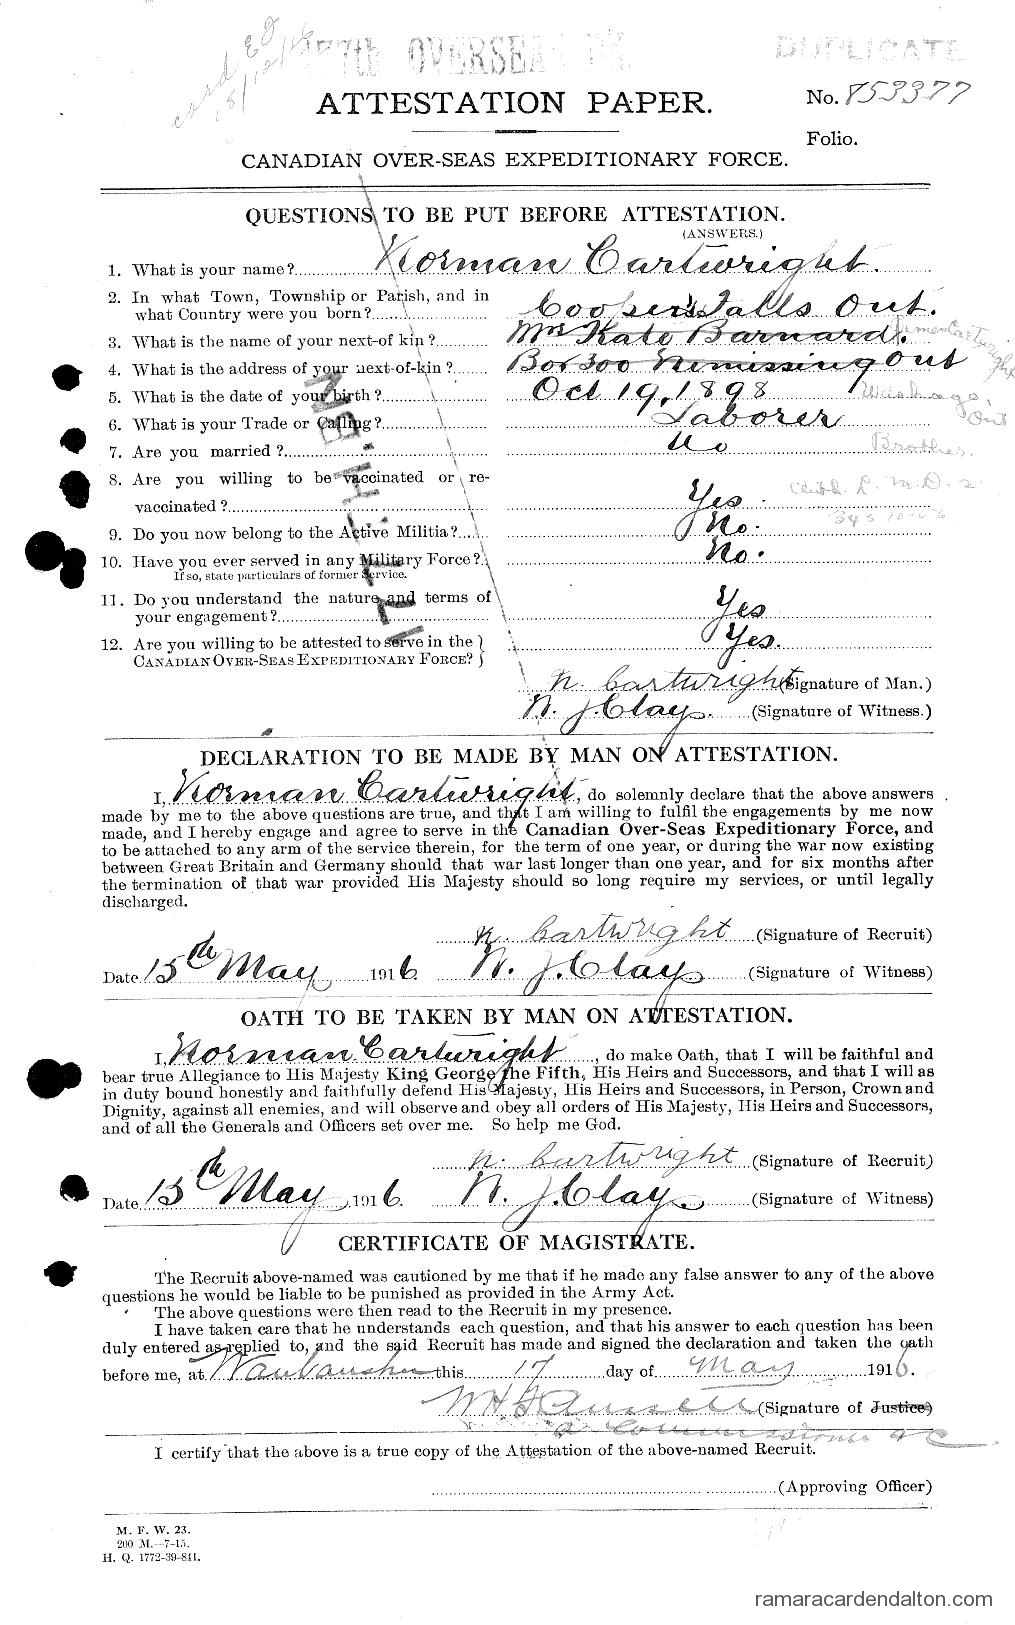 card
177th OVERSEAS BN.
DUPLICATE
ATTESTATION PAPER.
No. 853377
Folio.
CANADIAN OVER-SEAS EXPEDITIONARY FORCE.
QUESTIONS TO BE PUT BEFORE ATTESTATION.
(ANSWERS.)
1. What is your name? Norman Cartwright.
2. In what Town, Township or Parish, and in
what Country were you born? Cooper's Falls Ont.
3. What is the name of your next-of kin? Mrs Kate Barnard. James Cartwright
4. What is the address of your next-of-kin? Box 300 Nimissing Ont
5. What is the date of your birth? Oct 19, 1898 Washago, Ont
6. What is your Trade or Calling? Laborer
7. Are you married? No Brother.
8. Are you willing to be vaccinated or re-
vaccinated? Yes
9. Do you now belong to the Active Militia? No.
10. Have you ever served in any Military Force? No.
If so, state particulars of former Service.
11. Do you understand the nature and terms of
your engagement? Yes
12. Are you willing to be attested to serve in the
CANADIAN OVER-SEAS EXPEDITIONARY FORCE? Yes.
N. Cartwright (Signature of Man.)
N. J. Clay. (Signature of Witness.)
DECLARATION TO BE MADE BY MAN ON ATTESTATION.
I, Norman Cartwright, do solemnly declare that the above answers
made by me to the above questions are true, and that I am willing to fulfil the engagements by me now
made, and I hereby engage and agree to serve in the Canadian Over-Seas Expeditionary Force, and
to be attached to any arm of the service therein, for the term of one year, or during the war now existing
between Great Britain and Germany should that war last longer than one year, and for six months after
the termination of that war provided His Majesty should so long require my services, or until legally
discharged.
N. Cartwright (Signature of Recruit)
Date 15th May 1916 N. J. Clay (Signature of Witness)
OATH TO BE TAKEN BY MAN ON ATTESTATION.
I, Norman Cartwright, do make Oath, that I will be faithful and
bear true Allegiance to His Majesty King George the Fifth, His Heirs and Successors, and that I will as
in duty bound honestly and faithfully defend His Majesty, His Heirs and Successors, in Person, Crown and
Dignity, against all enemies, and will observe and obey all orders of His Majesty, His Heirs and Successors,
and of all the Generals and Officers set over me. So help me God.
N. Cartwright (Signature of Recruit)
Date 15th May 1916. N. J. Clay. (Signature of Witness)
CERTIFICATE OF MAGISTRATE.
The Recruit above-named was cautioned by me that if he made any false answer to any of the above
questions he would be liable to be punished as provided in the Army Act.
The above questions were then read to the Recruit in my presence.
I have taken care that he understands each question, and that his answer to each question has been
duly entered as replied to, and the said Recruit has made and signed the declaration and taken the oath
before me, at Waubaushene this 17 day of May 1916.
(Signature of Justice)
a Commissioner &c
I certify that the above is a true copy of the Attestation of the above-named Recruit.
(Approving Officer)
M. F. W. 23.
200 M.—7-15.
H. Q. 1772-39-841.
ramaracardendalton.com